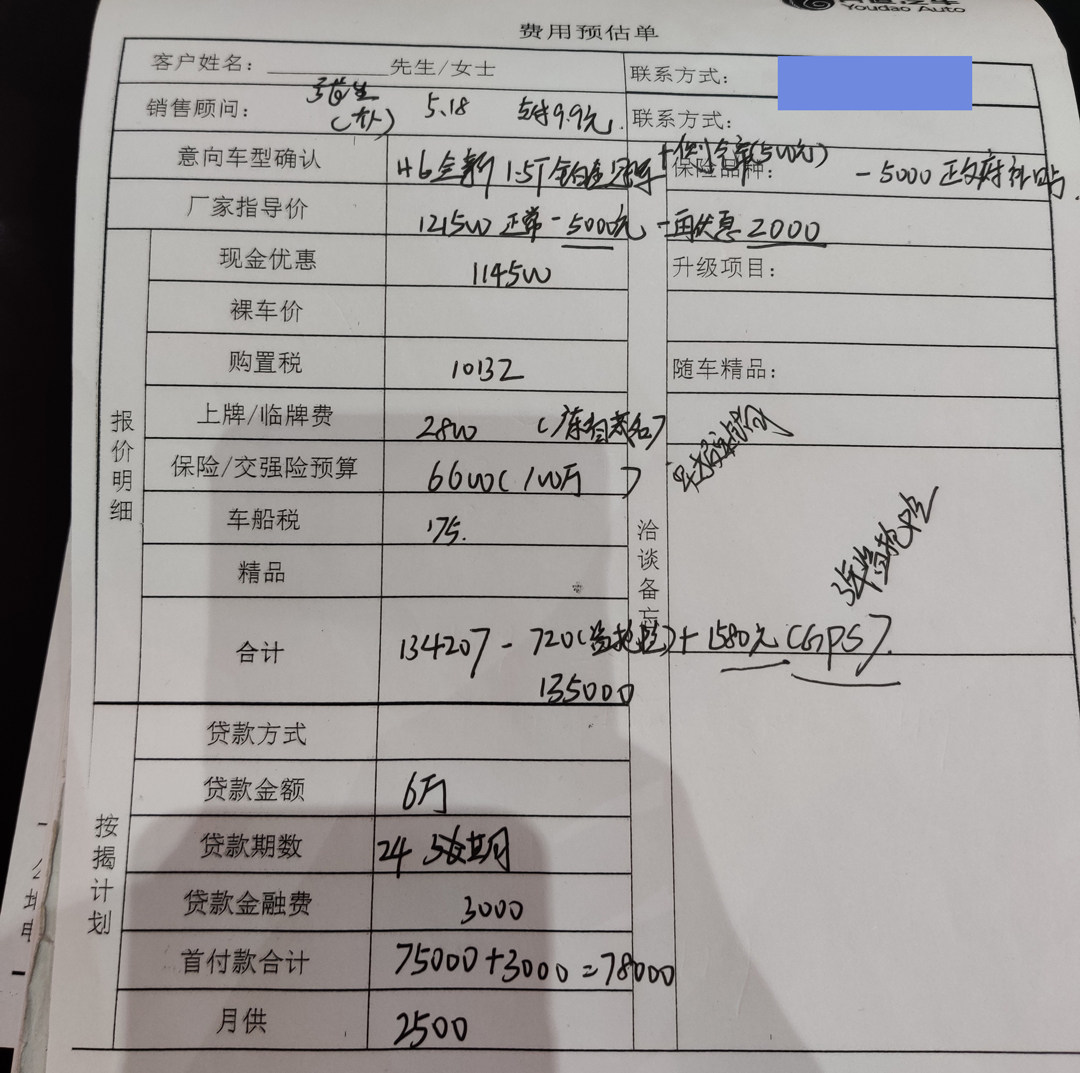 Youdao Auto
费用预估单
客户姓名： 先生/女士 联系方式：
销售顾问： 5.18 9.9元. 联系方式：
意向车型确认 H6全新 1.5T 保险品种： -5000 政府补贴.
厂家指导价 121500 正常 -5000元 -再优惠2000
报价明细
现金优惠 114500 升级项目：
裸车价
购置税 10132 随车精品：
上牌/临牌费 2800
保险/交强险预算 6600(100万)
车船税 175.
洽谈备忘
精品
3年盗抢险
合计 134207 - 720(盗抢险)+1580元(GPS).
135000
按揭计划
贷款方式
贷款金额 6万
贷款期数 24
贷款金融费 3000
首付款合计 75000+3000=78000
月供 2500